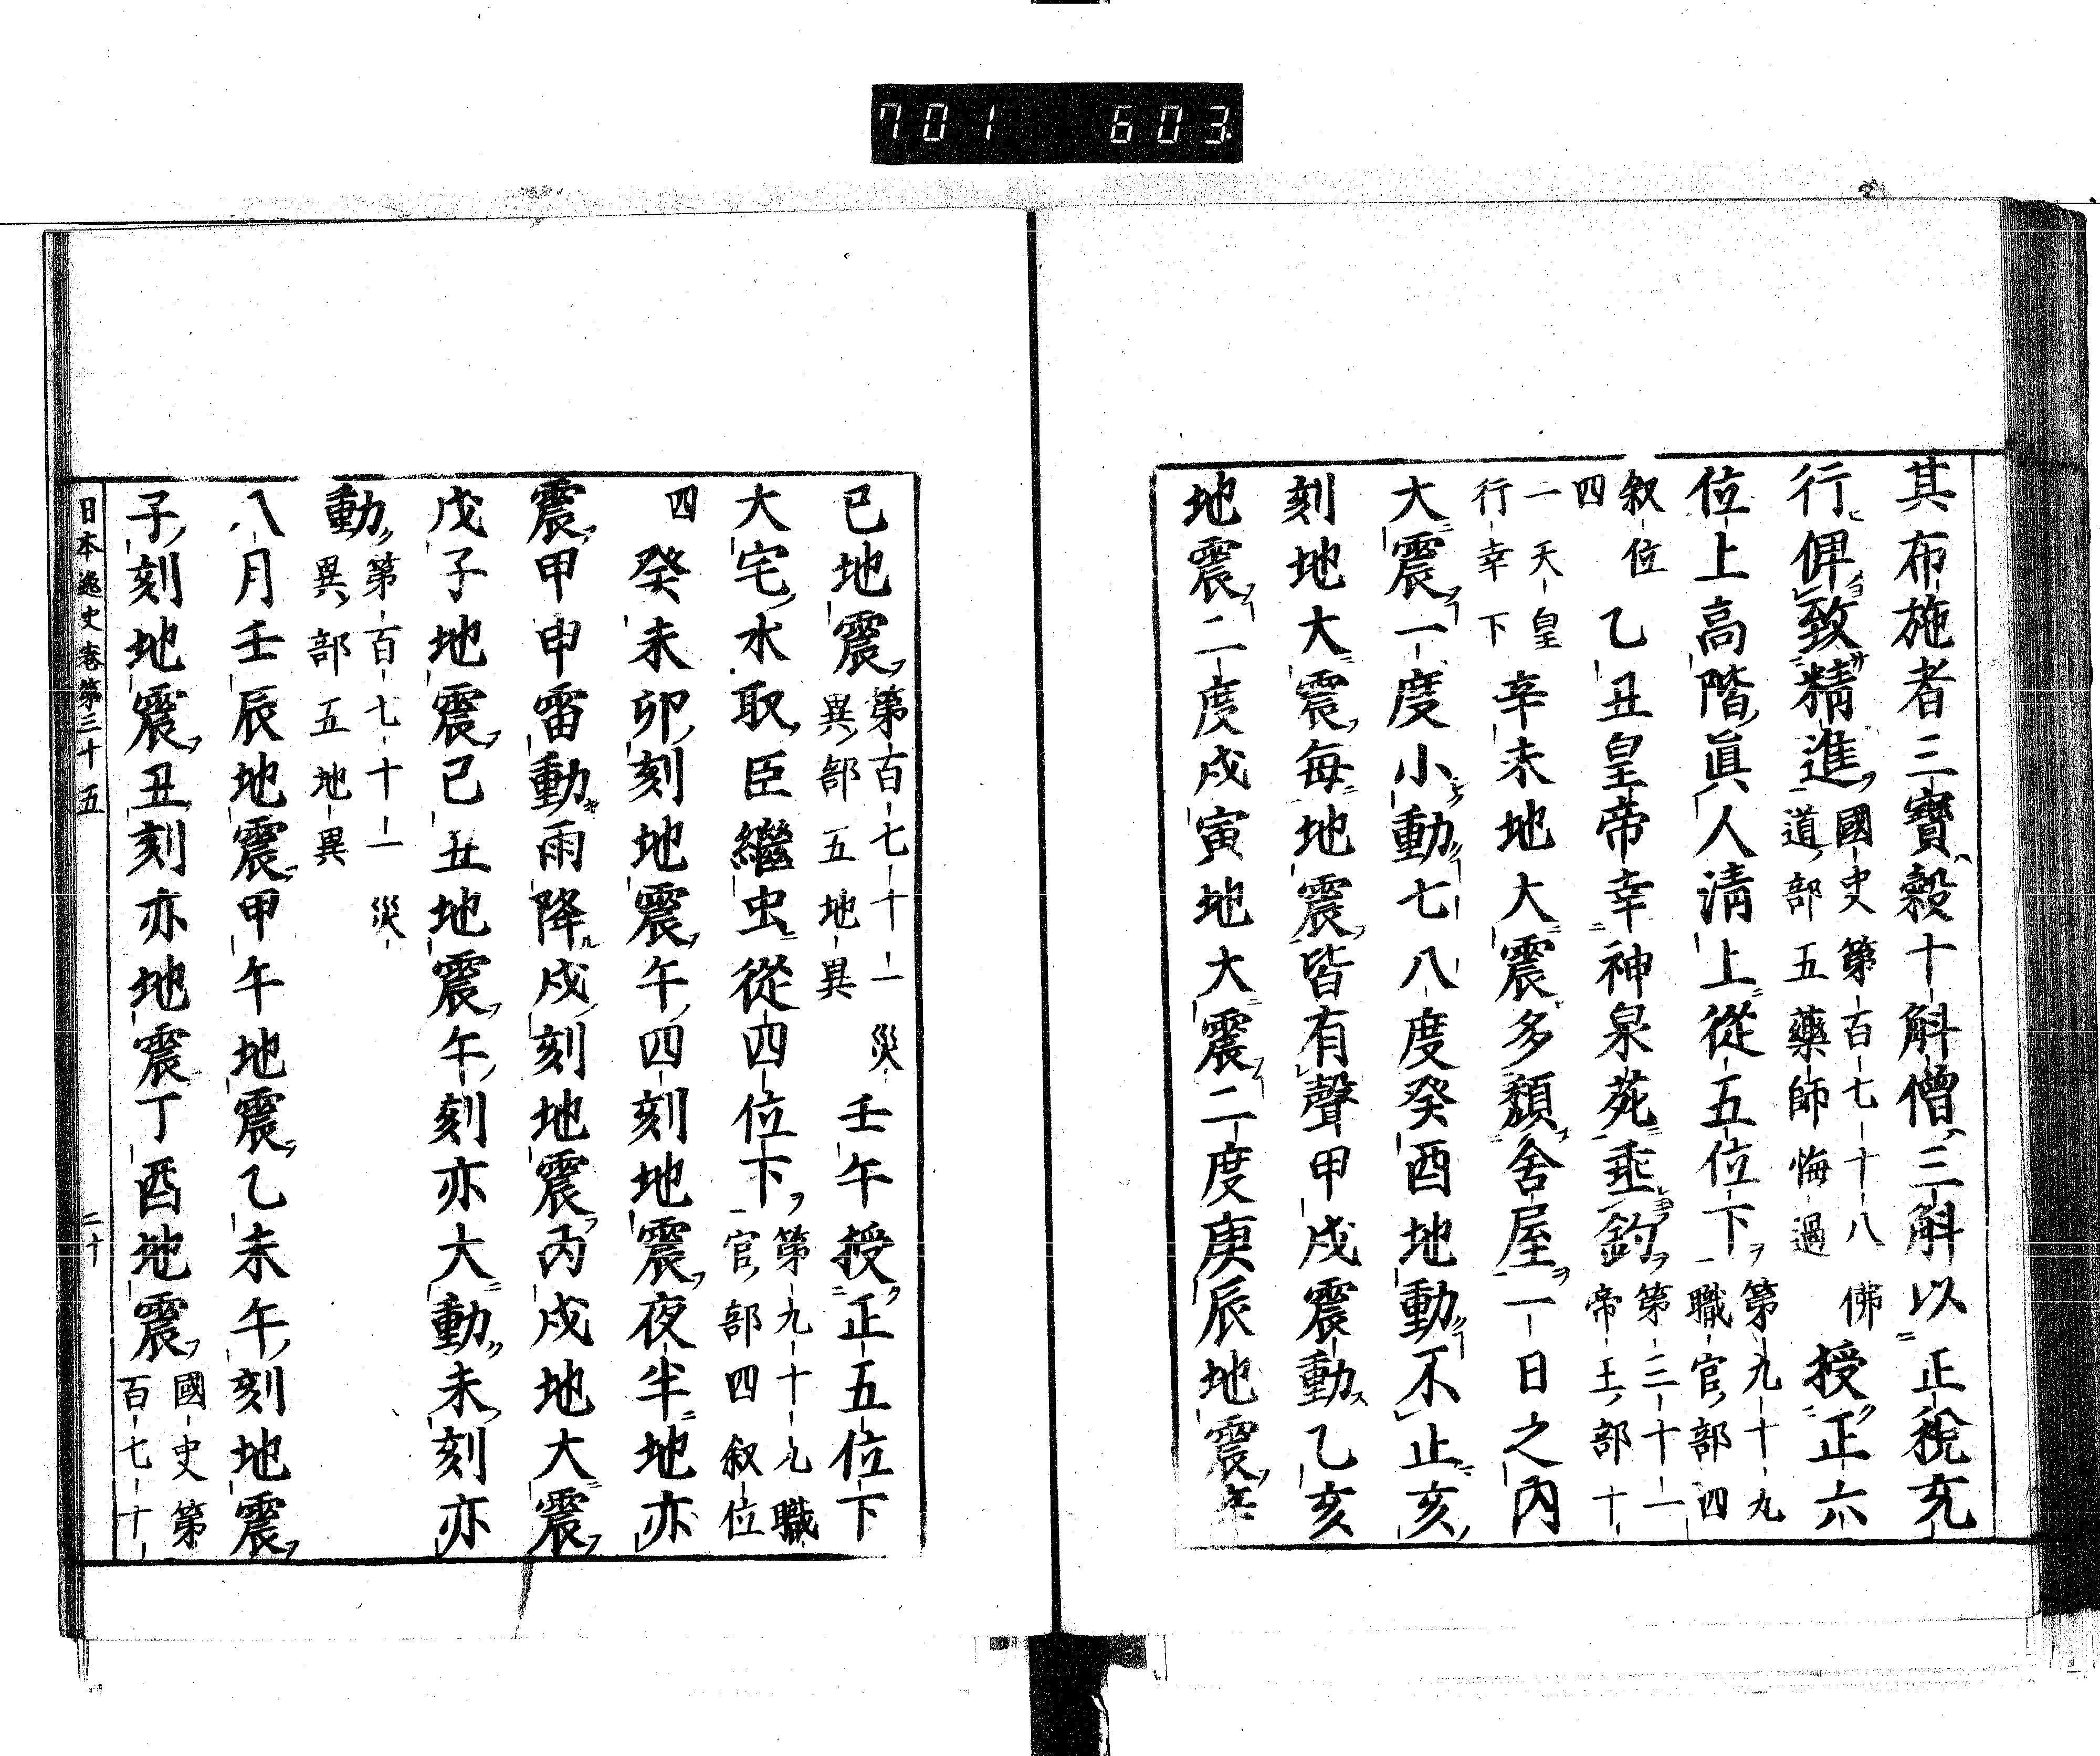 701 603
其布施者三寶穀十斛僧三斛以正稅充
行俾致精進國史第百七十八佛
道部五藥師悔過授正六
位上高階眞人淸上從五位下第九十九
職官部四
叙位
四乙丑皇帝幸神泉苑垂釣第三十一
帝王部十
一天皇
行幸下辛未地大震多頽舍屋一日之內
大震一度小動七八度癸酉地動不止亥
刻地大震每地震皆有聲甲戌震動乙亥
地震二度戊寅地大震二度庚辰地震辛
巳地震第百七十一災
異部五地異壬午授正五位下
大宅水取臣繼虫從四位下第九十九職
官部四叙位
四癸未卯刻地震午四刻地震夜半地亦
震甲申雷動雨降戌刻地震丙戌地大震
戊子地震己丑地震午刻亦大動未刻亦
動第百七十一災
異部五地異
八月壬辰地震甲午地震乙未午刻地震
子刻地震丑刻亦地震丁酉地震國史第
百七十
日本逸史卷第三十五 二十